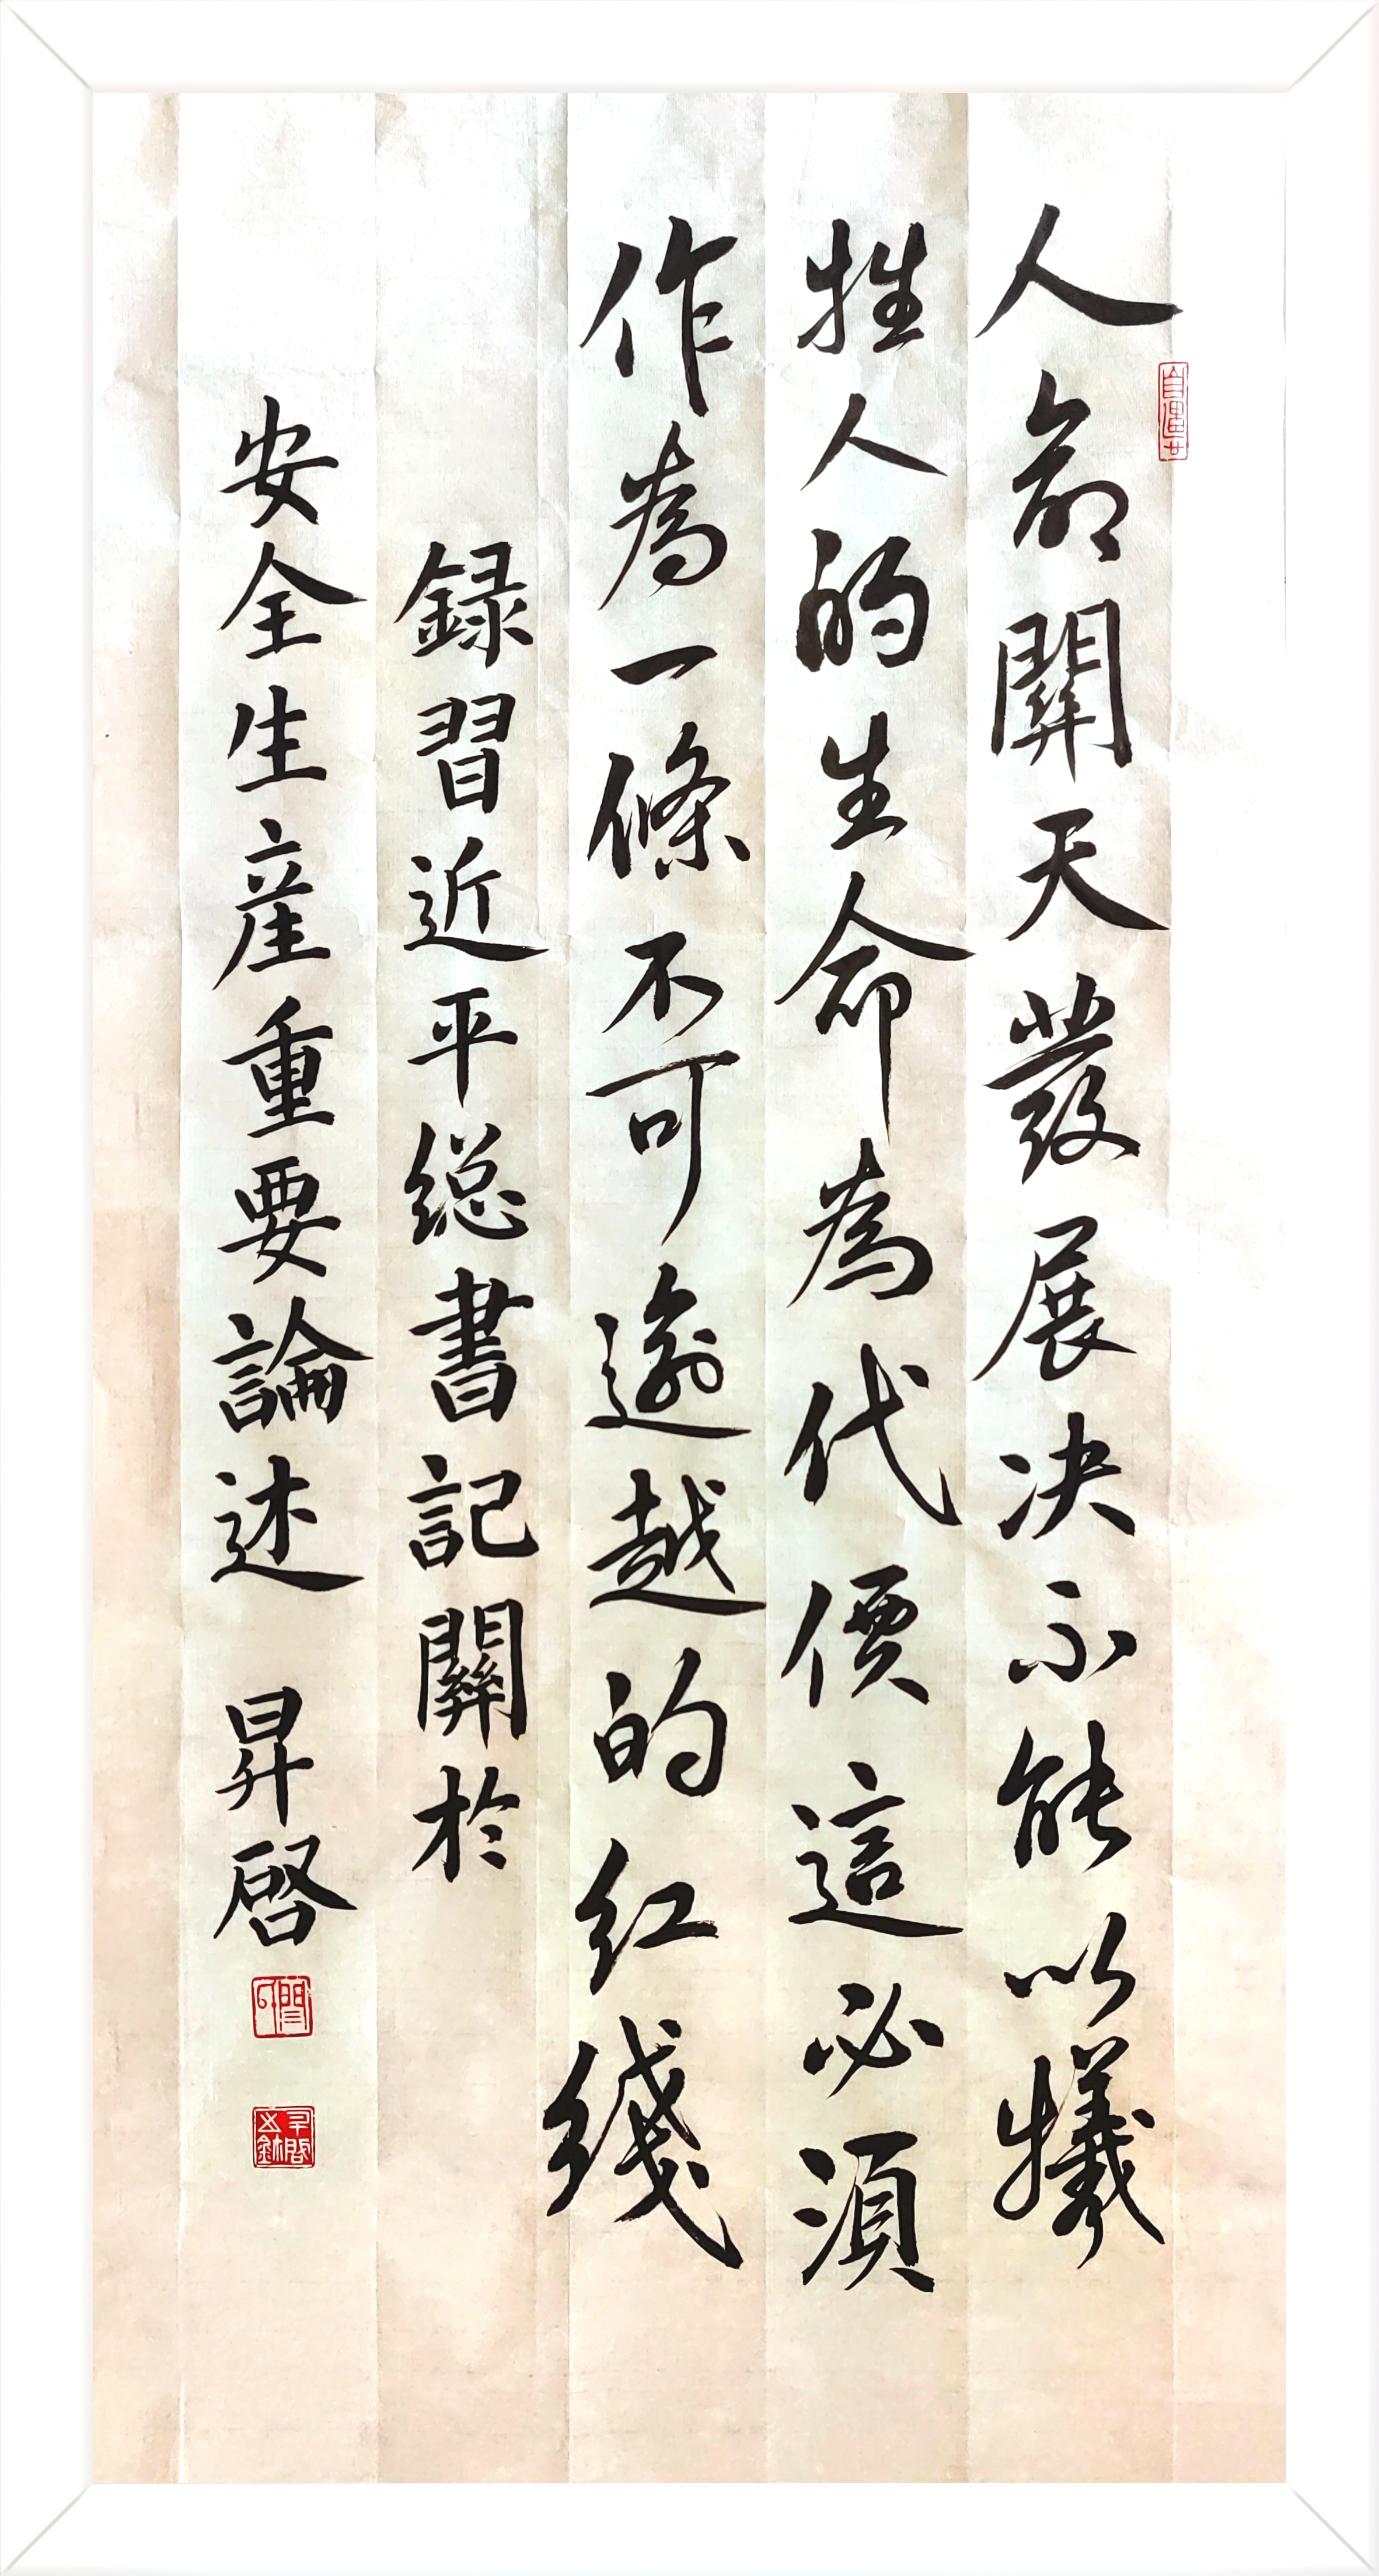 人命關天發展决不能以犧
牲人的生命為代價這必須
作為一條不可逾越的红线
録習近平総書記關於
安全生産重要論述 昇啓